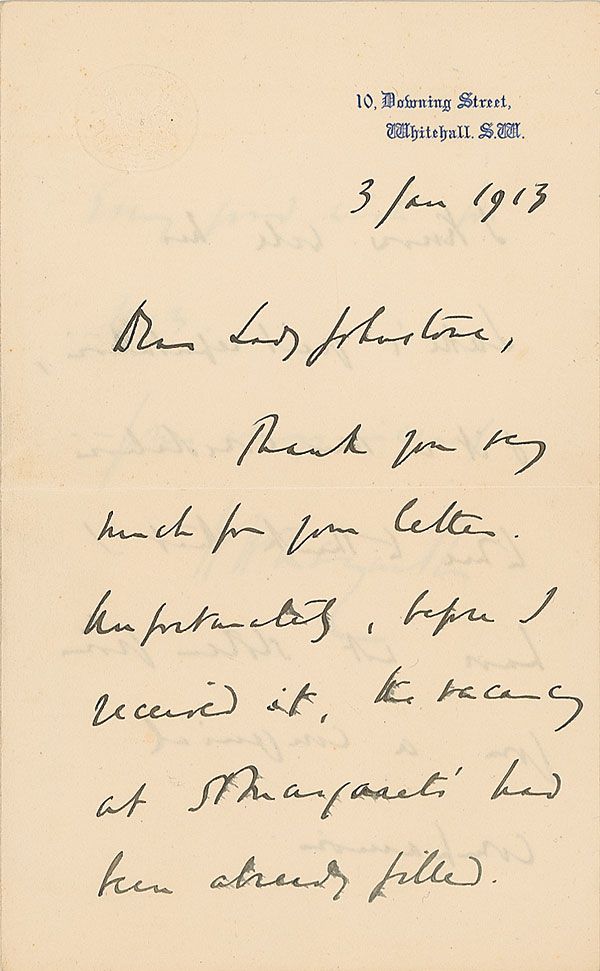 10, Downing Street,
Whitehall. S.W.
3 Jan 1913
Dear Lady Johnstone,
Thank you very
much for your letter.
Unfortunately, before I
received it, the vacancy
at St Margaret's had
been already filled.